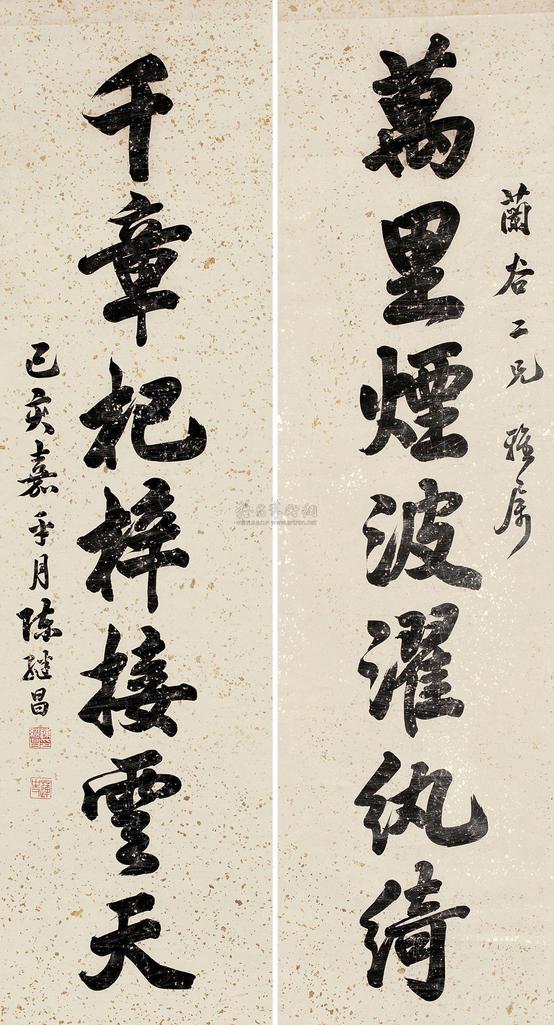 蘭谷二兄雅属
萬里煙波濯紈綺
千章杞梓接雲天
己亥嘉平月陈继昌